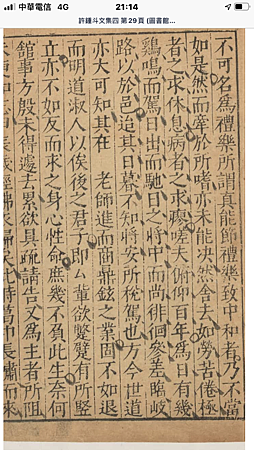 中華電信 4G 21:14
許鍾斗文集四 第29頁 (圖書館...
不可名為禮樂所謂真能節禮樂致中和者乃不當
如是然而牽於所嗜亦未能決然舍去如勞苦倦極
者之求休息病者之求瘳嗟夫俯仰百年為日有幾
鷄鳴而駕日出而馳日之將中而尚徘徊參差臨岐
路以於邑迨其日暮不知將安所稅駕也方今世道
亦大可知其在 老師進而商鼎鉉之業固不如退
而明道淑人以俟後之君子即厶輩欲蹩躠有所豎
立亦不如反而求之身心性命庶幾不負此生奈何
舘事方殷未得遽 累欲具疏請告又為 者所阻